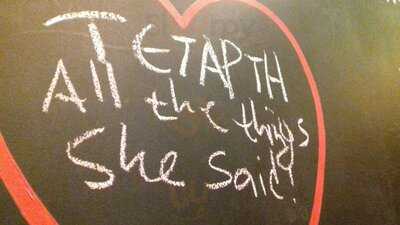 ΤΕΤΑΡΤΗ
All the things
She Said!